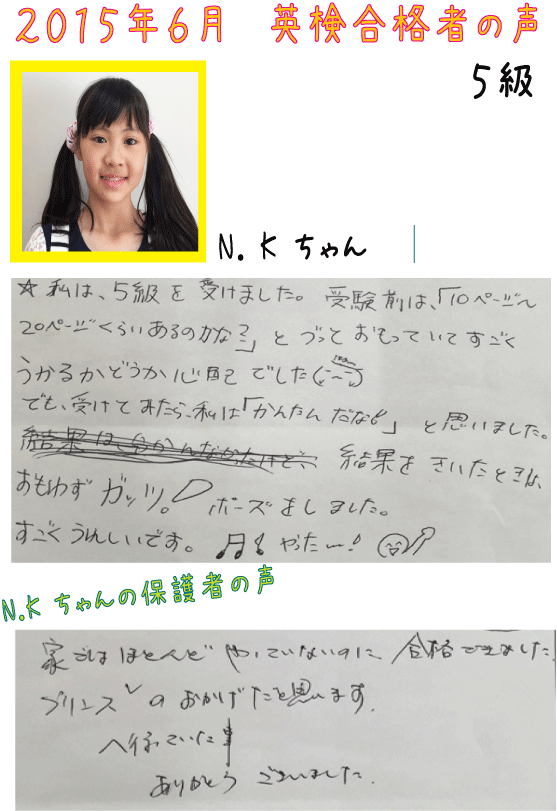 2015年6月 英検合格者の声
5級
N.Kちゃん
☆私は、5級を受けました。受験前は、「10ページ〜
20ページくらいあるのかな?」とづっとおもっていてすごく
うかるかどうか心配でした
でも、受けてみたら、私は「かんたんだなぁ」と思いました。
結果をきいたときは、
おもわずガッツ!ポーズをしました。
すごくうれしいです。♫♪やったー!
N.Kちゃんの保護者の声
家ではほとんどやっていないのに合格できました
プリンスのおかげだと思います。
へ行っていた
ありがとうございました。